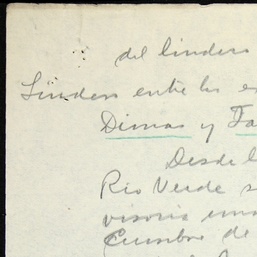 del lindero
Lindero entre los
Dimas y
Desde l
Rio Verde s
visoria
Cumbre de